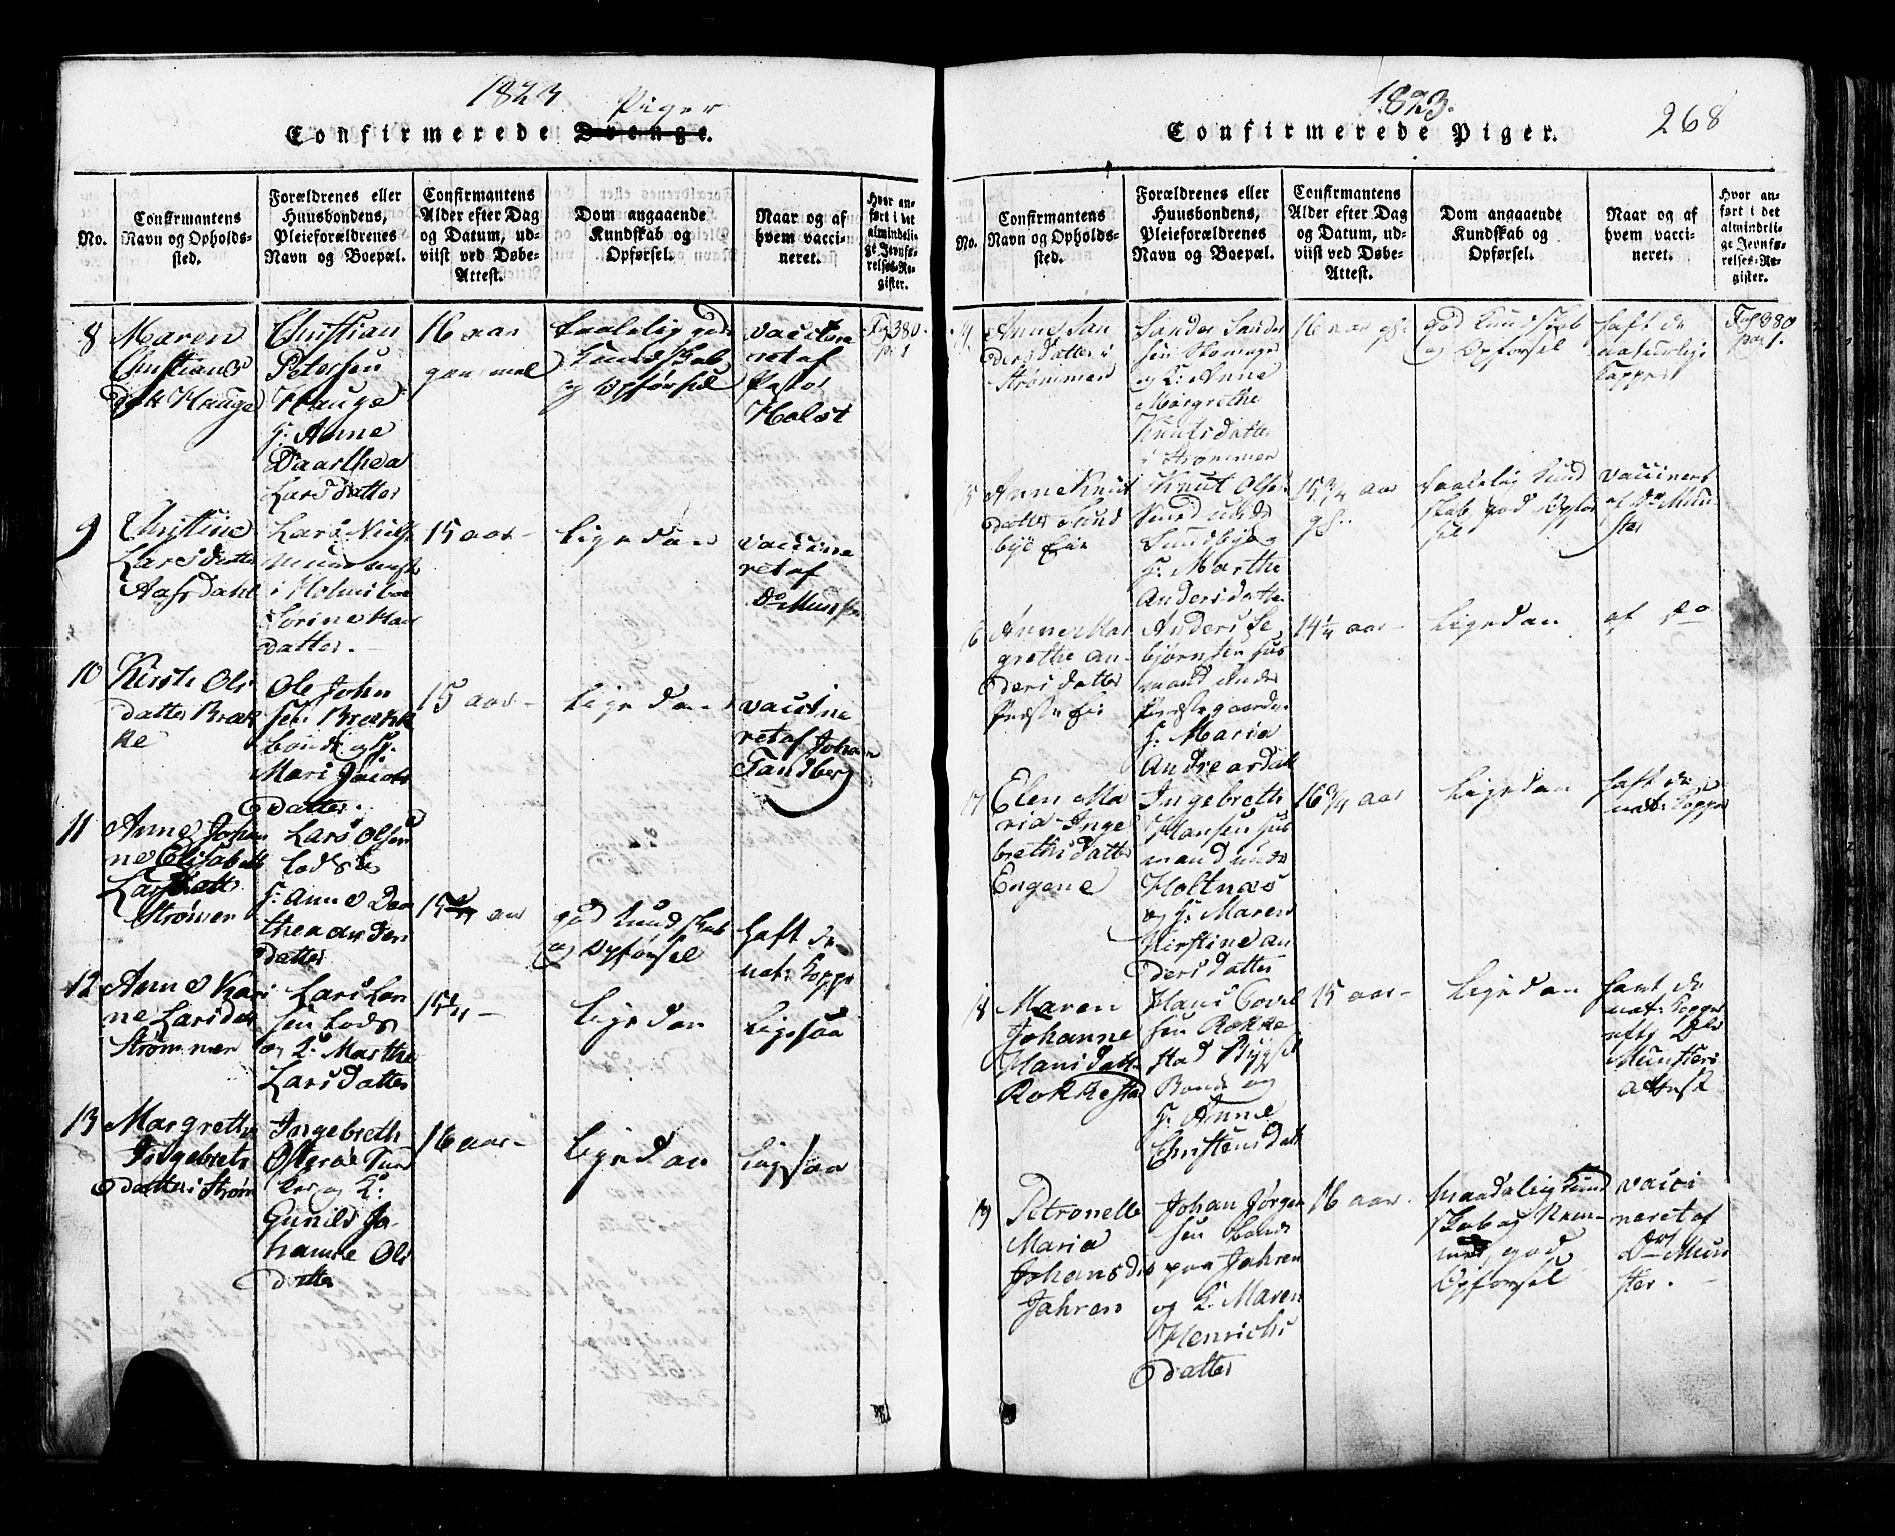 1823
Piger
Confirmerede Drenge.
No.
Confirmantens
Navn og Opholds-
sted.
Forældrenes eller
Huusbondens,
Pleieforældrenes
Navn og Boepæl.
Confirmantens
Alder efter Dag
og Datum, ud-
viist ved Døbe-
Attest.
Dom angaaende
Kundskab og
Opførsel.
Naar og af
hvem vacci-
neret.
Hvor an-
ført i det
almindeli-
ge Jevnfø-
relses-Re-
gister.
8
Maren
Christians
datt Hauge
Christian
Petersen
Hauge
Anne
Daarthea
Larsdatter
16 aar
gammel
taalelig god
Kundskab
og Opførsel
vaccine
ret af
Pastor
Holst
Fol 380
No 1
9
Christine
Larsdatter
Aafsdahl
Lars Niels
i Holmsboe
Sørine Han
datter.
15 aar
ligedan
vaccine
ret af
Dr Münster
10
Kirsti Ols
datter Bræk
ke
Ole John
sen Brække
bonde og H.
Mari Jacobs
datter.
15 aar
ligedan
vaccine
ret af Johan
Tandberg
11
Anne Johan
ne Elisabeth
Larsdatt
Strømen
Lars Olsen
Lods
H. Anne Daa
thea Anders
datter
15 aar
god Kundskab
og Opførsel
haft de
nat: Kopper
12
Anne Kari
ne Larsdat
Strømmen
Lars Lar
sen Lods
og K. Marthe
Larsdatter
15¼
ligedan
ligesaa
13
Margrethe
Ingebrets
datter i Strøm
Ingebreth
Osterøe
og K:
Gunild Jo-
hanne Ols
datter
16 aar
ligedan
ligesaa
1823.
268
Confirmerede Piger.
No.
Confirmantens
Navn og Opholds-
sted.
Forældrenes eller
Huusbondens,
Pleieforældrenes
Navn og Boepæl.
Confirmantens
Alder efter Dag
og Datum, ud-
viist ved Døbe-
Attest.
Dom angaaende
Kundskab og
Opførsel.
Naar og af
hvem vacci-
neret.
Hvor an-
ført i det
almindeli-
ge Jevnfø-
relses-Re-
gister.
4
Anne San
dersdatter i
Strømmen
Sander Sander
sen
og K: Anne
Margrethe
Knutsdatter
i Strømmen
16 aar gl:
god Kundskab
og Opførsel
haft de
naturlige
Kopper
Fol 380
No 1.
5
Anne Knut
datter Sund
bye Eie
Knut Olsen
Sundbye og
H: Marthe
Andersdatter
15¾ aar
gl.
taalelig Kund
skab, god Opfør
sel
vaccineret
af Dr Mün
ster
6
Anne Mar
grethe An-
dersdatter
Anders
bjørnsen hus
mand under
Præstegaarden
H: Maria
Andreasdatt
14¼ aar
ligedan
af Do
7
Elen Ma
ria Inge
brethsdatter
Engene
Ingebreth
Hansen hus
mand under
Holtnæs
og H. Maren
Kirstine An
dersdatter
16¾ aar
ligedan
haft de
nat: Kopper
8
Maren
Johanne
Hansdatter
Rokkestad
Hans
sen Rokke
stad
Bonde og
H. Anne
Christensdatt
15 aar
ligedan
havt de
nat: Kopper
efter Drs
Münsters
attest
19
Petronelle
Maria
Johansdat
Jahren
Johan Jørgen
sen
paa Jahren
og K. Maren
Henrichs
datter
16 aar
maadelig Kund
skab og
god
Opførsel
vacci
neret af
Dr Mün
ster.